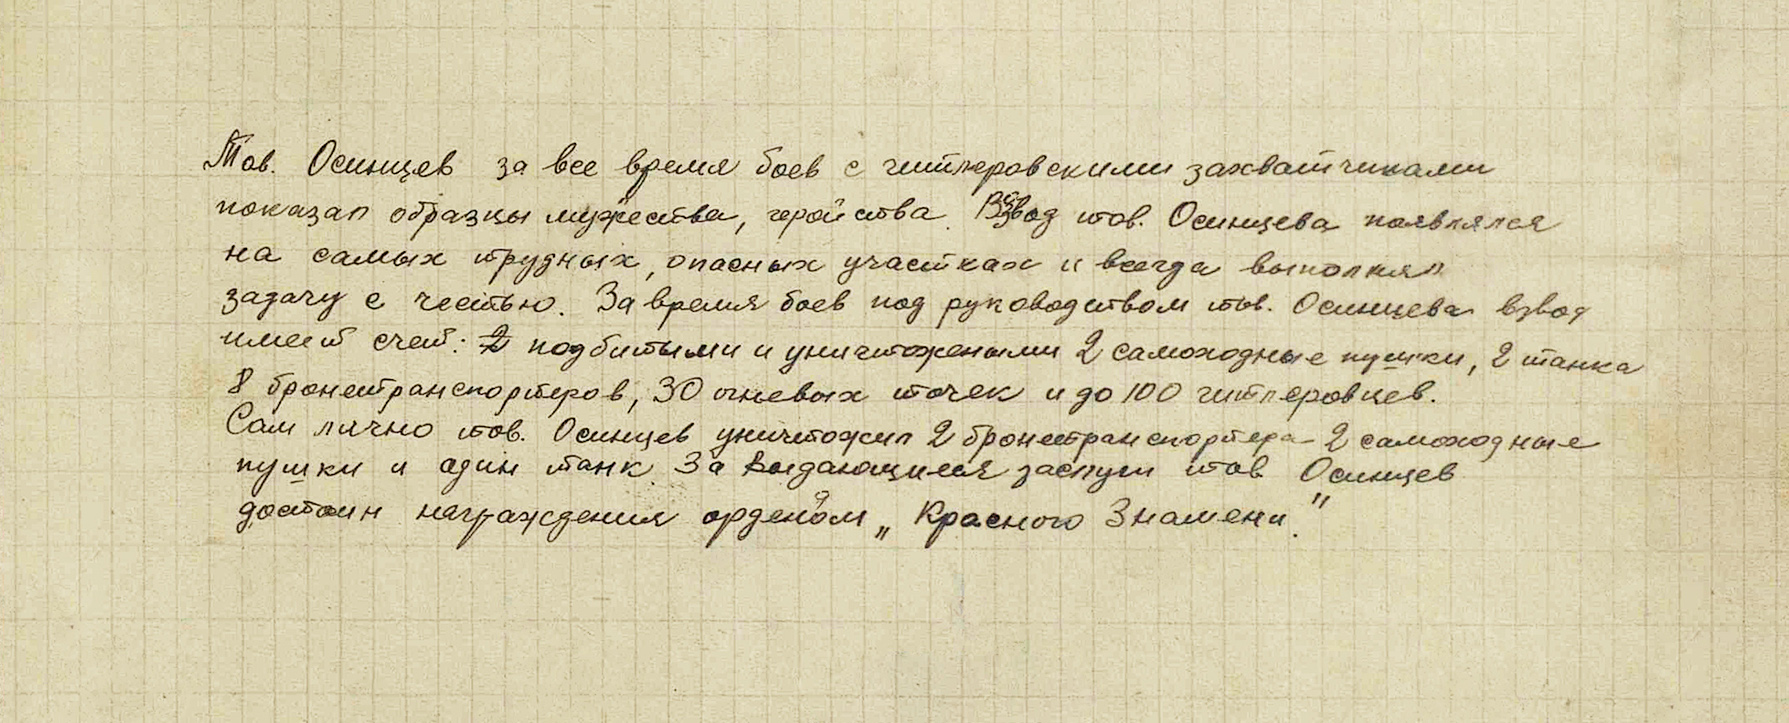 Тов. Осинцев за все время боев с гитлеровскими захватчиками
показал образцы мужества, геройства. Взвод тов. Осинцева появлялся
на самых трудных, опасных участках и всегда выполнял
задачу с честью. За время боев под руководством тов. Осинцева взвод
имеет счет: подбитыми и уничтожеными 2 самоходные пушки, 2 танка
8 бронетранспортеров, 30 огневых точек и до 100 гитлеровцев.
Сам лично тов. Осинцев уничтожил 2 бронетранспортера 2 самоходные
пушки и один танк. За выдающиеся заслуги тов. Осинцев
достоин награждения орденом „Красного Знамени."